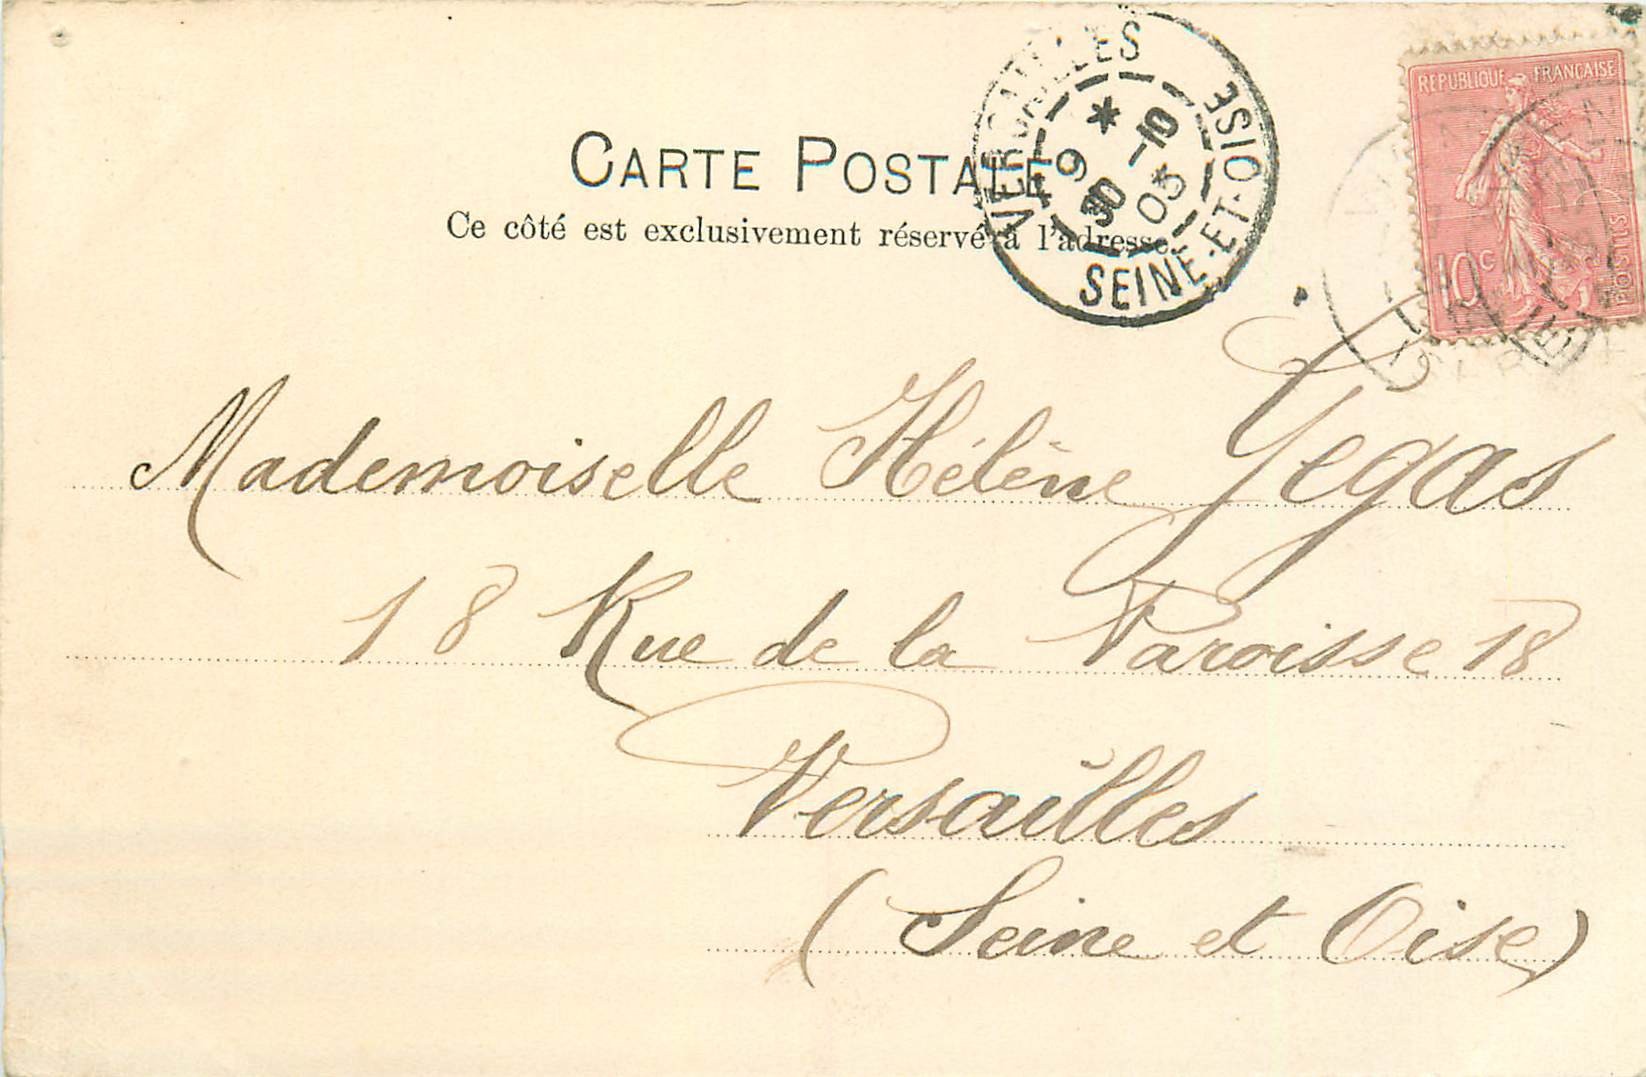 CARTE POSTALE
Ce côté est exclusivement réservé à l'adresse
VERSAILLES
SEINE-ET-OISE
* 9
10
03
REPUBLIQUE FRANÇAISE
10 c
POSTES
Mademoiselle Hélène Gegas
18 Rue de la Paroisse 18
Versailles
(Seine et Oise)